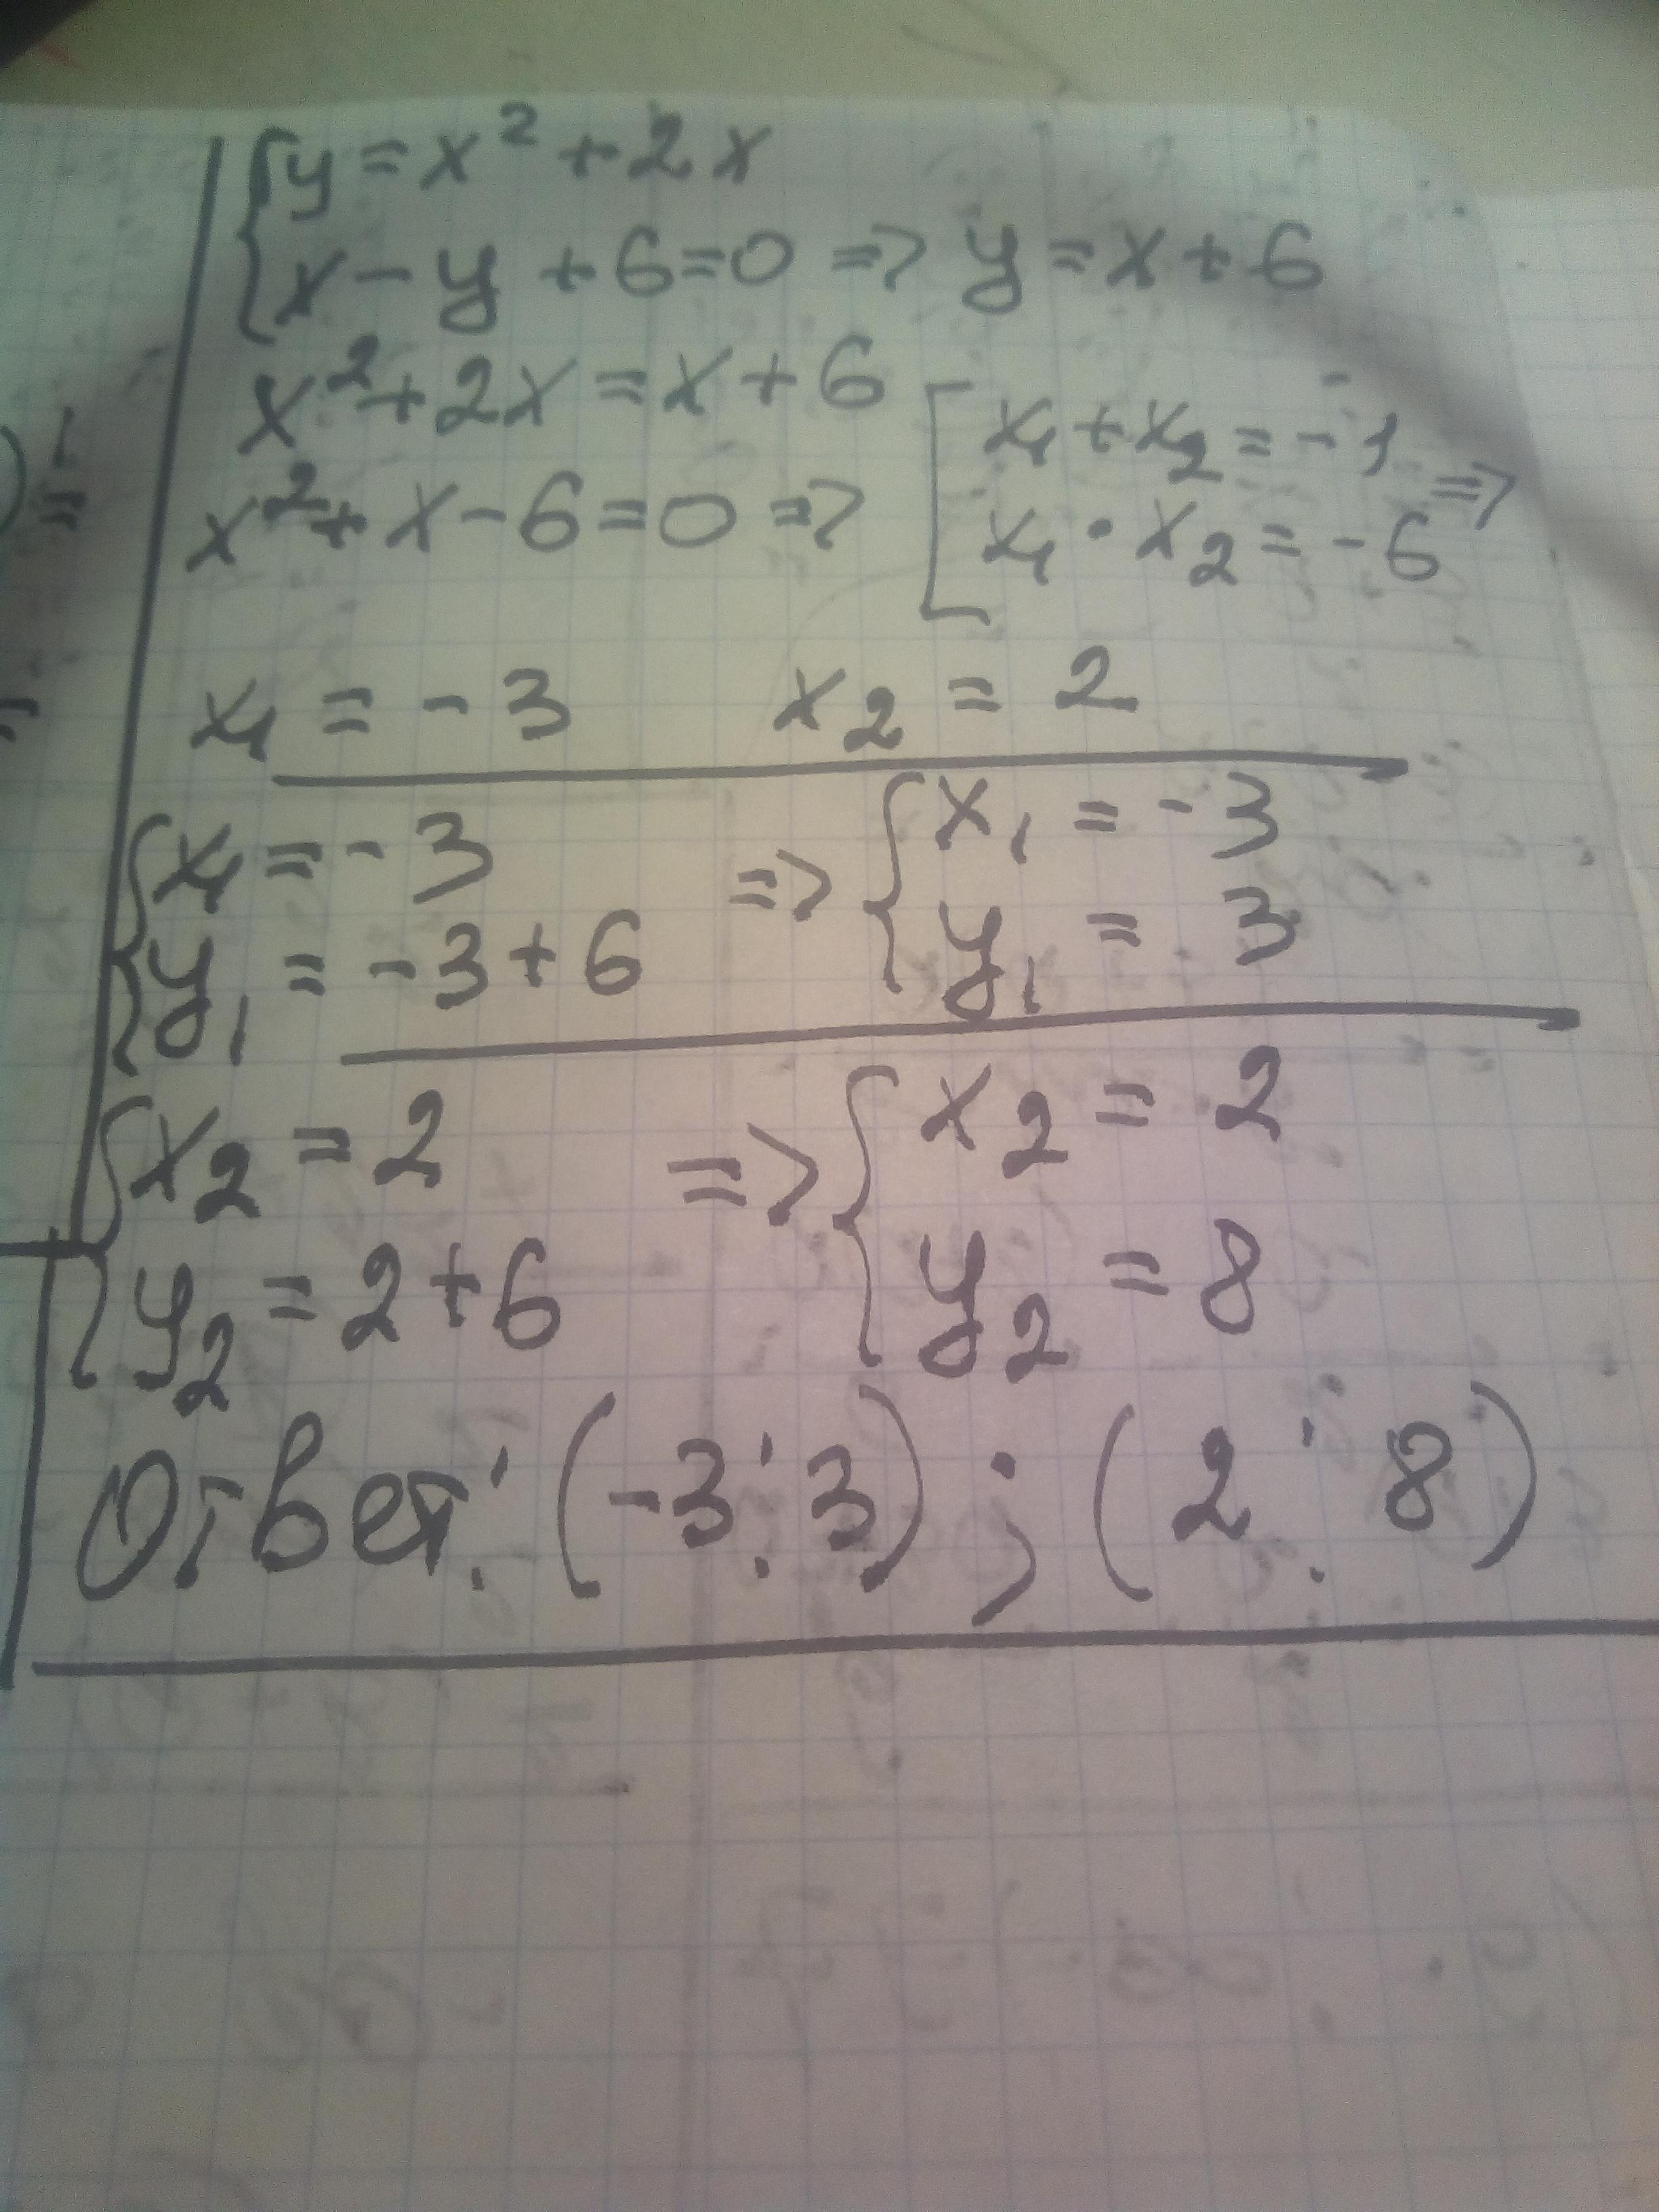 {y = x² + 2x
{x - y + 6 = 0 => y = x + 6
x² + 2x = x + 6
x² + x - 6 = 0 => [x₁ + x₂ = -1
[x₁ · x₂ = -6 =>
x₁ = -3 x₂ = 2
{x₁ = -3 => {x₁ = -3
{y₁ = -3 + 6 {y₁ = 3
{x₂ = 2 => {x₂ = 2
{y₂ = 2 + 6 {y₂ = 8
Ответ: (-3 : 3) ; (2 : 8)